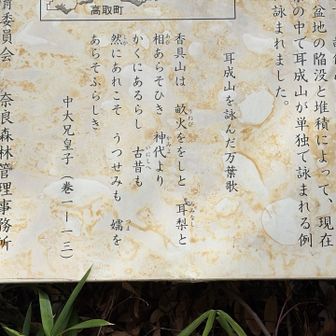 高取町
盆地の陥没と堆積によって、現在
の中で耳成山が単独で詠まれる例
詠まれました。
耳成山を詠んだ万葉歌
香具山は 畝火ををしと 耳梨と
相あらそひき 神代より
かくにあるらし 古昔も
然にあれこそ うつせみも 嬬を
あらそふらしき
中大兄皇子(巻一ー一三)
育委員会 奈良森林管理事務所